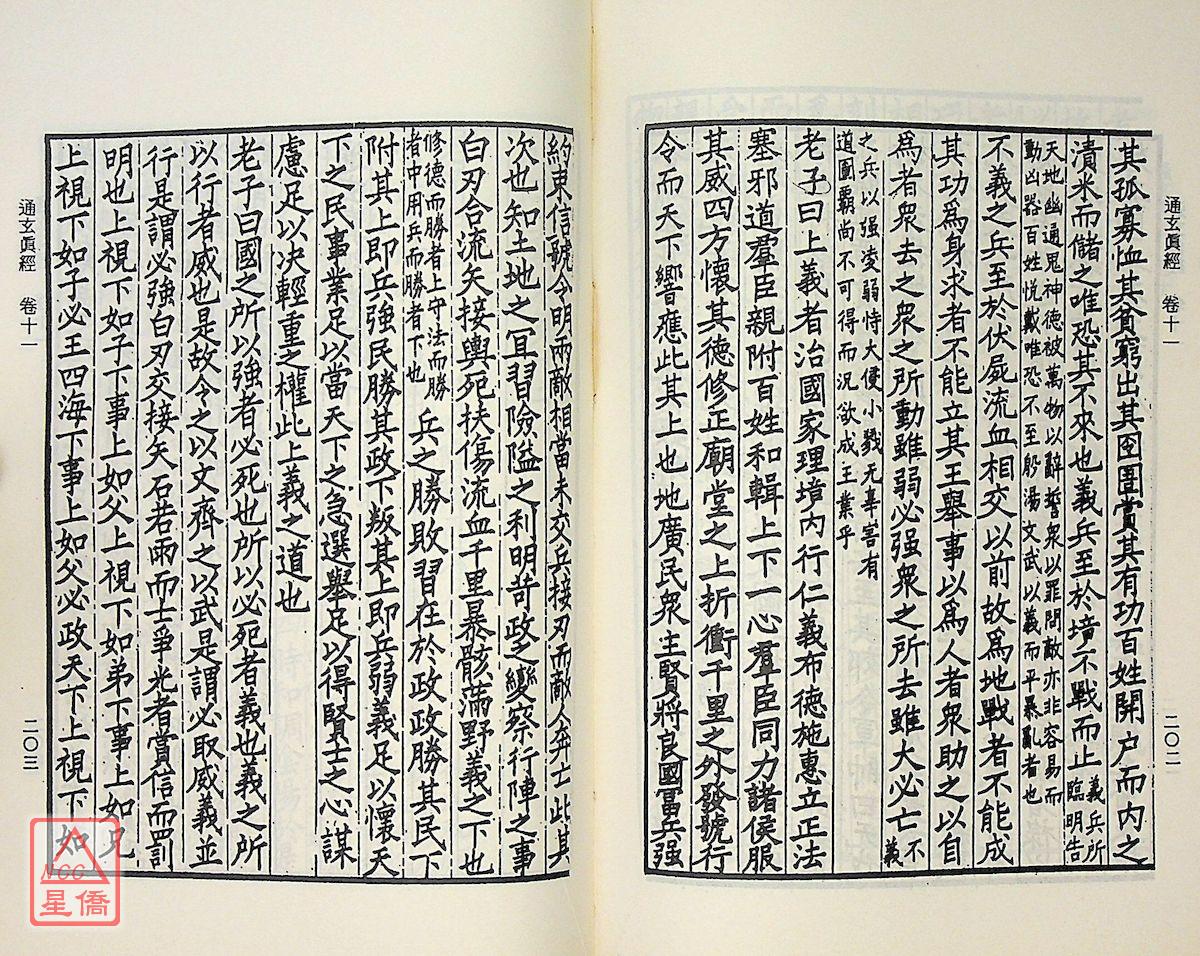 通玄眞經　卷十一
二〇二
其孤寡恤其貧窮出其囹圄賞其有功百姓開户而内之
漬米而儲之唯恐其不來也義兵至於境不戰而止義兵所臨明告
天地幽通鬼神德被萬物以辭誓衆以罪問敵亦非容易而
動凶器百姓悦戴唯恐不至殷湯文武以義而平暴亂者也
不義之兵至於伏屍流血相交以前故爲地戰者不能成
其功爲身求者不能立其王舉事以爲人者衆助之以自
爲者衆去之衆之所動雖弱必强衆之所去雖大必亡不義
之兵以强凌弱恃大侵小戮无辜害有
道圖霸尚不可得而況欲成王業乎
老子曰上義者治國家理境内行仁義布德施惠立正法
塞邪道羣臣親附百姓和輯上下一心羣臣同力諸侯服
其威四方懷其德修正廟堂之上折衝千里之外發號行
令而天下響應此其上也地廣民衆主賢將良國富兵强
約束信號令明兩敵相當未交兵接刃而敵人奔亡此其
次也知土地之冝習險隘之利明苛政之變察行陣之事
白刃合流矢接輿死扶傷流血千里暴骸滿野義之下也
修德而勝者上守法而勝
者中用兵而勝者下也
兵之勝敗習在於政政勝其民下
附其上即兵強民勝其政下叛其上即兵弱義足以懷天
下之民事業足以當天下之急選舉足以得賢士之心謀
慮足以决輕重之權此上義之道也
老子曰國之所以強者必死也所以必死者義也義之所
以行者威也是故令之以文齊之以武是謂必取威義並
行是謂必強白刃交接矢石若雨而士爭光者賞信而罰
明也上視下如子下事上如父上視下如弟下事上如兄
上視下如子必王四海下事上如父必政天下上視下如
通玄眞經　卷十一
二〇三
NCC
星僑